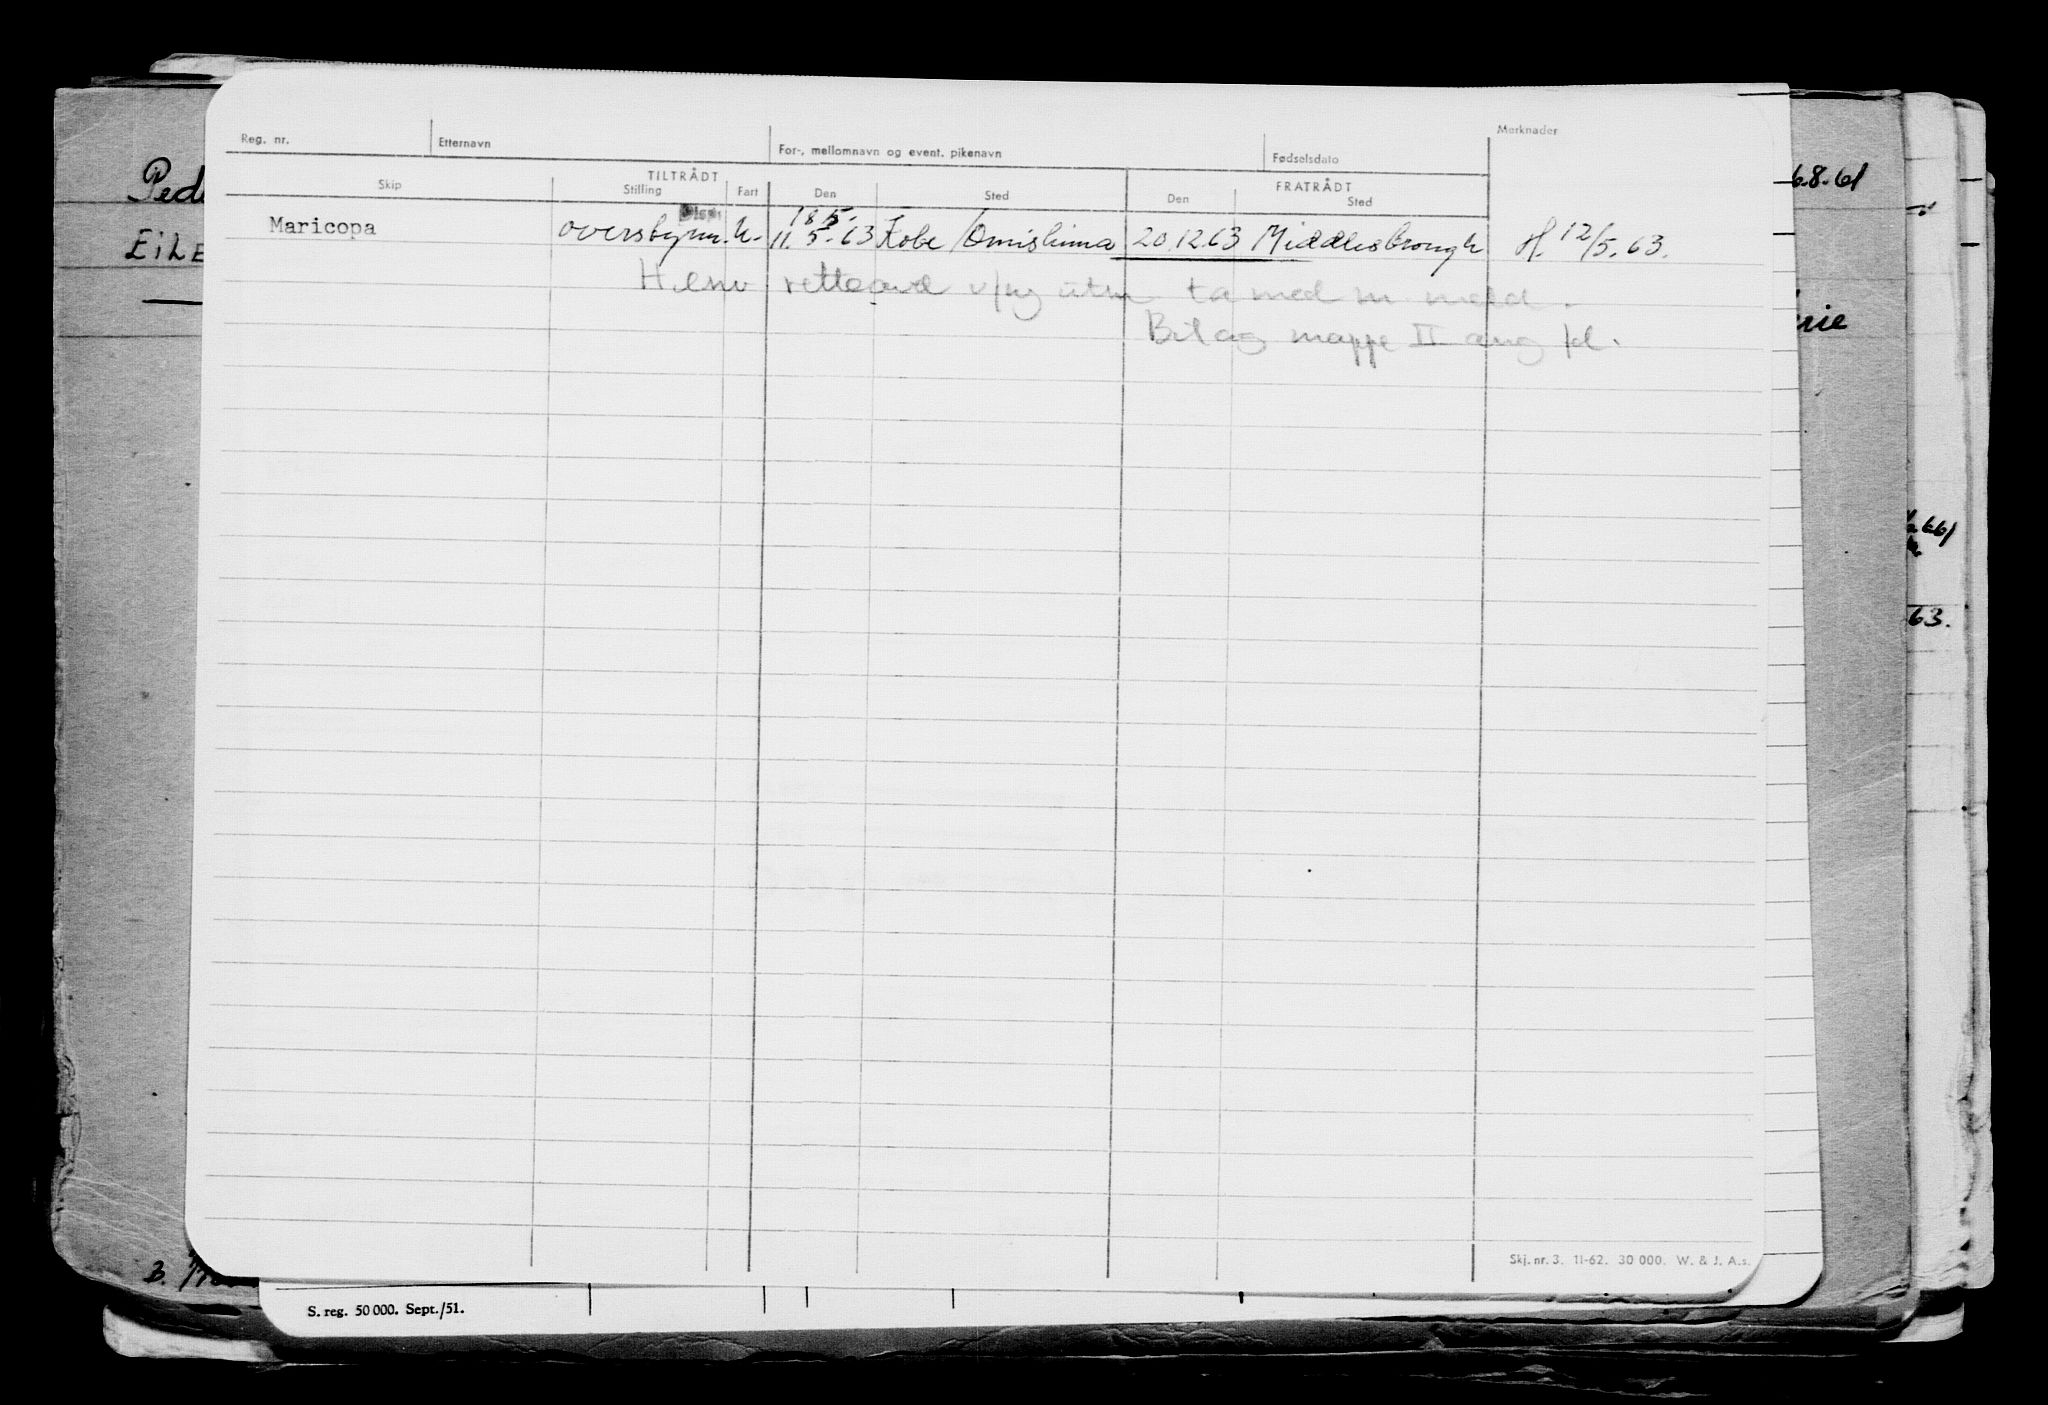 Reg. nr. Etternavn For-, mellomnavn og event. pikenavn Fødselsdato Merknader
TILTRÅDT FRATRÅDT
Skip Stilling Fart Den Sted Den Sted
18 5.
Maricopa overstyrm. u- 11. 5 - 63 Kobe / Omishima 20.12.63 Middlesbrough H. 12/5. 63.
ta med m. meld.
Bilag mappe II ang
6.8.61
Ped
EiLE
rie
63.
B.
Skj. nr. 3. 11-62. 30 000. W. & J. A.s.
S. reg. 50 000. Sept./51.